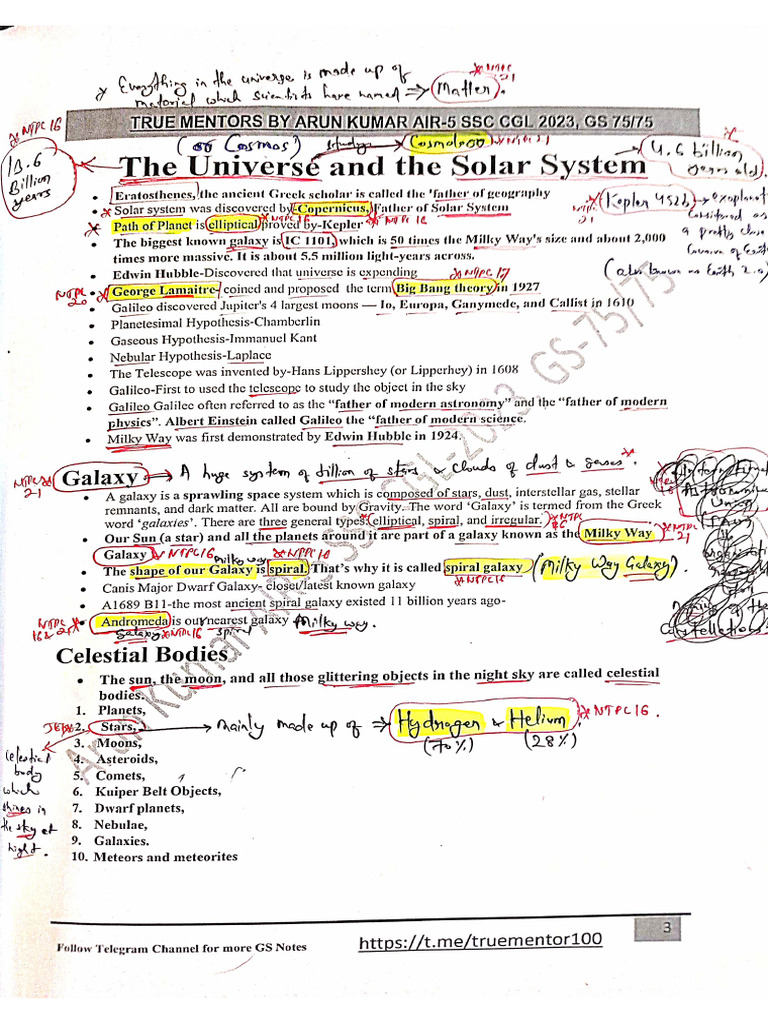 * Everything in the universe is made up of
material which scientists have named => Matter.
* NTPC 21
TRUE MENTORS BY ARUN KUMAR AIR-5 SSC CGL 2023, GS 75/75
* NTPC 16
(or Cosmos)
study
Cosmology
13.6
Billion
years
4.6 billion
years old)
The Universe and the Solar System
• Eratosthenes, the ancient Greek scholar is called the 'father of geography
• Solar system was discovered by -Copernicus, Father of Solar System
Kepler 452b → exoplanet
considered as
a pretty close
(also known as Earth 2.0)
• Path of Planet is elliptical proved by-Kepler
• The biggest known galaxy is IC 1101, which is 50 times the Milky Way's size and about 2,000
times more massive. It is about 5.5 million light-years across.
• Edwin Hubble-Discovered that universe is expending
* NTPC 17
NTPC 20
• George Lamaitre- coined and proposed the term Big Bang theory in 1927
• Galileo discovered Jupiter's 4 largest moons — Io, Europa, Ganymede, and Callist in 1610
• Planetesimal Hypothesis-Chamberlin
• Gaseous Hypothesis-Immanuel Kant
• Nebular Hypothesis-Laplace
• The Telescope was invented by-Hans Lippershey (or Lipperhey) in 1608
• Galileo-First to used the telescope to study the object in the sky
• Galileo Galilee often referred to as the “father of modern astronomy” and the “father of modern
physics”. Albert Einstein called Galileo the “father of modern science.
• Milky Way was first demonstrated by Edwin Hubble in 1924.
NTPC 21
Galaxy → A huge system of billion of stars & clouds of dust & gases.
• A galaxy is a sprawling space system which is composed of stars, dust, interstellar gas, stellar
remnants, and dark matter. All are bound by Gravity. The word ‘Galaxy’ is termed from the Greek
word ‘galaxies’. There are three general types: elliptical, spiral, and irregular.
• Our Sun (a star) and all the planets around it are part of a galaxy known as the Milky Way
NTPC 21
Galaxy
* NTPC 16
milky way
• The shape of our Galaxy is spiral. That’s why it is called spiral galaxy (Milky Way Galaxy).
* NTPC 16
• Canis Major Dwarf Galaxy- closet/latest known galaxy
• A1689 B11-the most ancient spiral galaxy existed 11 billion years ago-
• Andromeda is our nearest galaxy Milky way.
galaxy * NTPC 16 spiral
Celestial Bodies
• The sun, the moon, and all those glittering objects in the night sky are called celestial
bodies.
1. Planets,
2. Stars, → mainly made up of => Hydrogen & Helium * NTPC 16.
(70%) (28%)
3. Moons,
4. Asteroids,
5. Comets,
6. Kuiper Belt Objects,
7. Dwarf planets,
8. Nebulae,
9. Galaxies.
10. Meteors and meteorites
celestial
body
which
shines in
the sky at
night.
Arun Kumar AIR-5 SSC CGL-2023 GS-75/75
Follow Telegram Channel for more GS Notes
https://t.me/truementor100
3